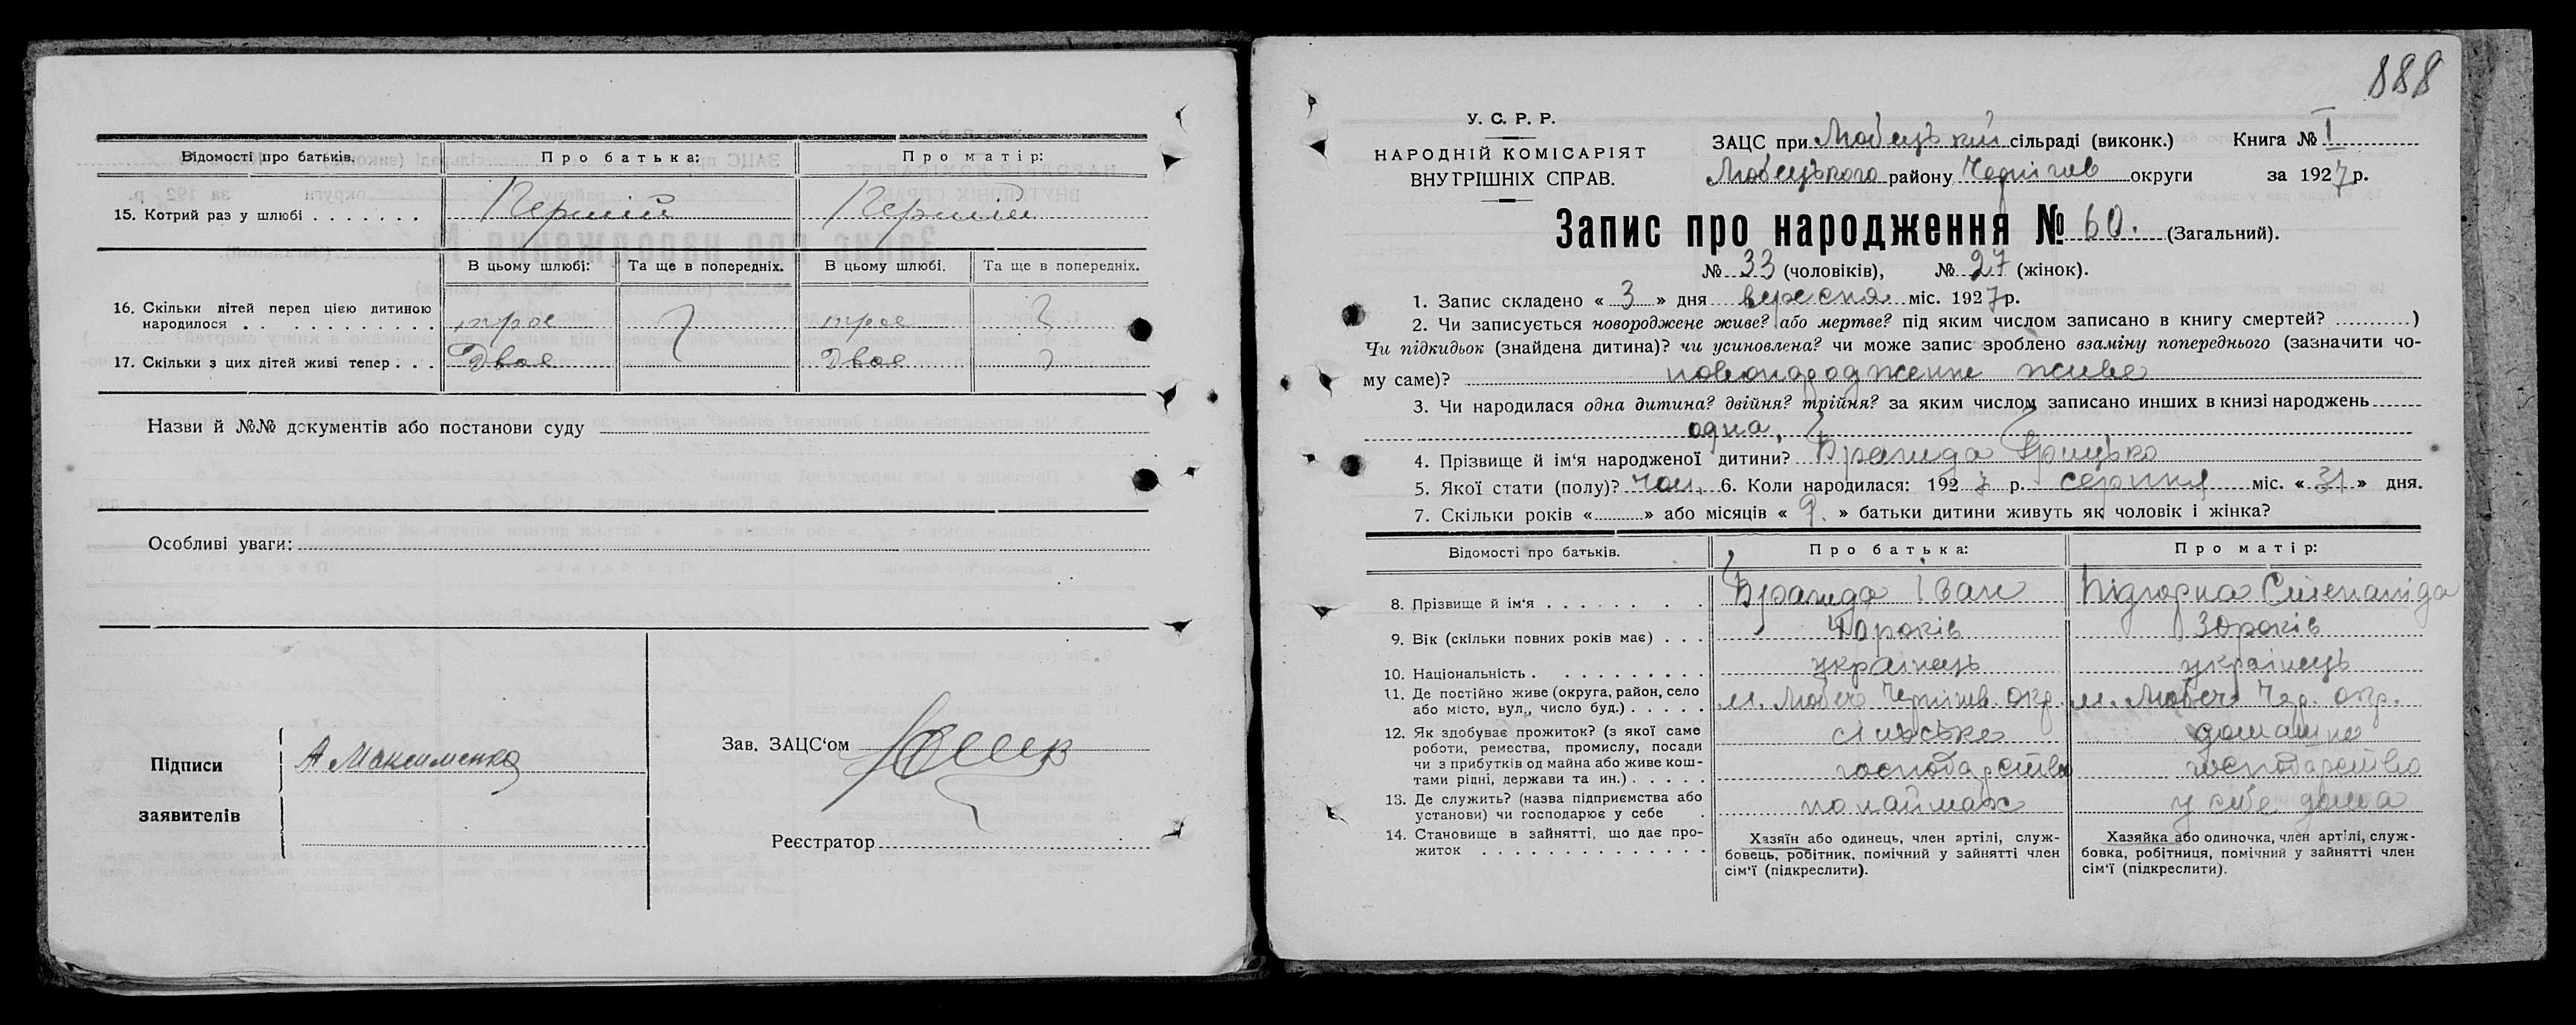 Відомості про батьків.
Про батька:
Про матір:
15. Котрий раз у шлюбі . . . . . . .
Перший
Перший
В цьому шлюбі:
Та ще в попередніх.
В цьому шлюбі.
Та ще в попередніх.
16. Скільки дітей перед цією дитиною
народилося . . . . . . . . . . . .
троє
троє
17. Скільки з цих дітей живі тепер . . .
Двоє
Двоє
Назви й №№ документів або постанови суду
Особливі уваги:
Підписи
заявителів
А Максименко
Зав. ЗАЦС‘ом
Реєстратор
888
У. С. Р. Р.
НАРОДНІЙ КОМІСАРІЯТ
ВНУТРІШНІХ СПРАВ.
ЗАЦС при Любецькій сільраді (виконк.) Книга № I
Любецького району Чернігив округи за 1927 р.
Запис про народження № 60. (Загальний).
№ 33 (чоловіків), № 27 (жінок).
1. Запис складено « 3 » дня вересня міс. 1927 р.
2. Чи записується новороджене живе? або мертве? під яким числом записано в книгу смертей? )
Чи підкидьок (знайдена дитина)? чи усиновлена? чи може запис зроблено взаміну попереднього (зазначити чо-
му саме)? новонародженне живе
3. Чи народилася одна дитина? двійня? трійня? за яким числом записано инших в книзі народжень
одна,
4. Прізвище й ім‘я народженої дитини? Грицько
5. Якої стати (полу)? чол. 6. Коли народилася: 1927 р. серпня міс. « 31 » дня.
7. Скільки років « » або місяців « 9. » батьки дитини живуть як чоловік і жінка?
Відомості про батьків.
Про батька:
Про матір:
8. Прізвище й ім‘я . . . . . . . .
Іван
Підгорна Степанида
9. Вік (скільки повних років має) . . .
40 років
30 років
10. Національність . . . . . . . . . .
українець
українець
11. Де постійно живе (округа, район, село
або місто, вул., число буд.) . . . . .
м. Любеч Чернігив. окр.
м. Любеч Чер. окр.
12. Як здобуває прожиток? (з якої саме
роботи, ремества, промислу, посади
чи з прибутків од майна або живе кош-
тами рідні, держави та ин.) . . . . .
сільське
господарство
домашнє
господарство
13. Де служить? (назва підприємства або
установи) чи господарює у себе .
по наймах
у себе дома
14. Становище в зайнятті, що дає про-
житок . . . . . . . . . . . . . .
Хазяїн або одинець, член артілі, служ-
бовець, робітник, помічний у зайнятті член
сім‘ї (підкреслити).
Хазяйка або одиночка, член артілі, служ-
бовка, робітниця, помічний у зайнятті член
сім‘ї (підкреслити).